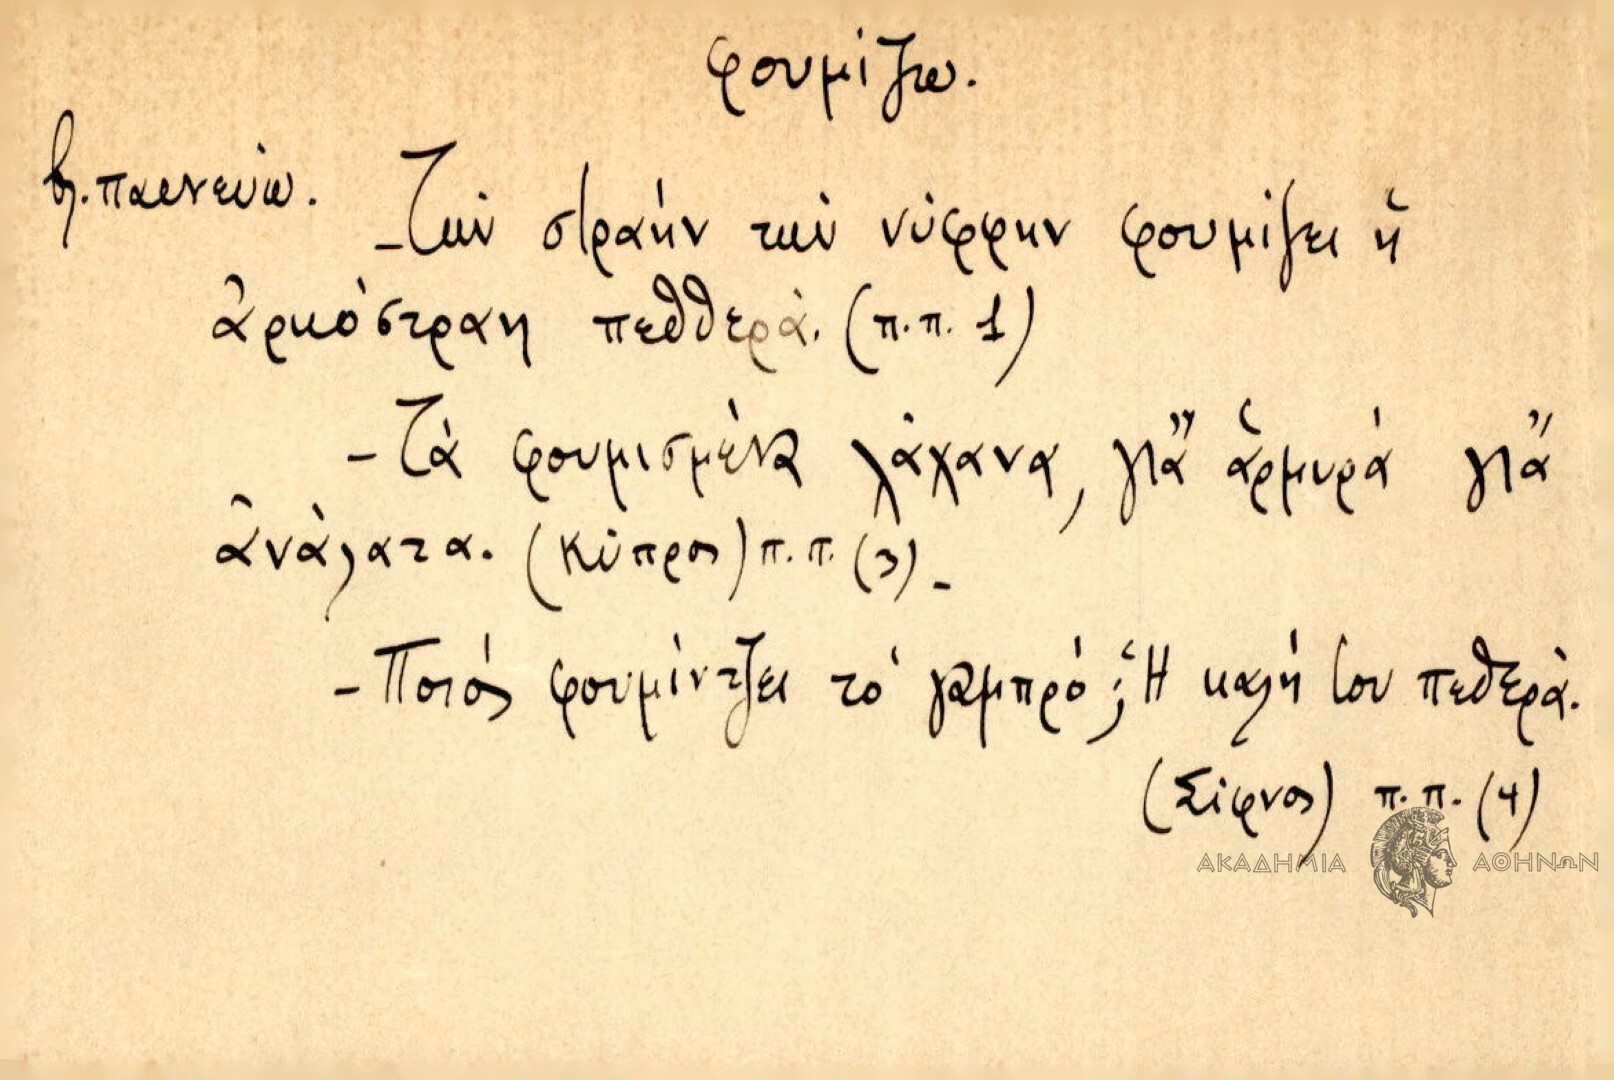 φουμίζω.
βλ. παινεύω.
- Τὴν στραὴν τὴν νύφφην φουμίζει ἡ
ἀρκόστραη πεθθερά. (π.π. 1)
- Τὰ φουμισμένα λάχανα, γιἂ ἁρμυρὰ γιἂ
ἀνάλατα. (Κύπρος) π.π. (3) -
- Ποιός φουμίντζει τὸ γαμπρό; Ἡ καλή του πεθερά.
(Σίφνος) π.π. (4)
ΑΚΑΔΗΜΙΑ ΑΘΗΝΩΝ